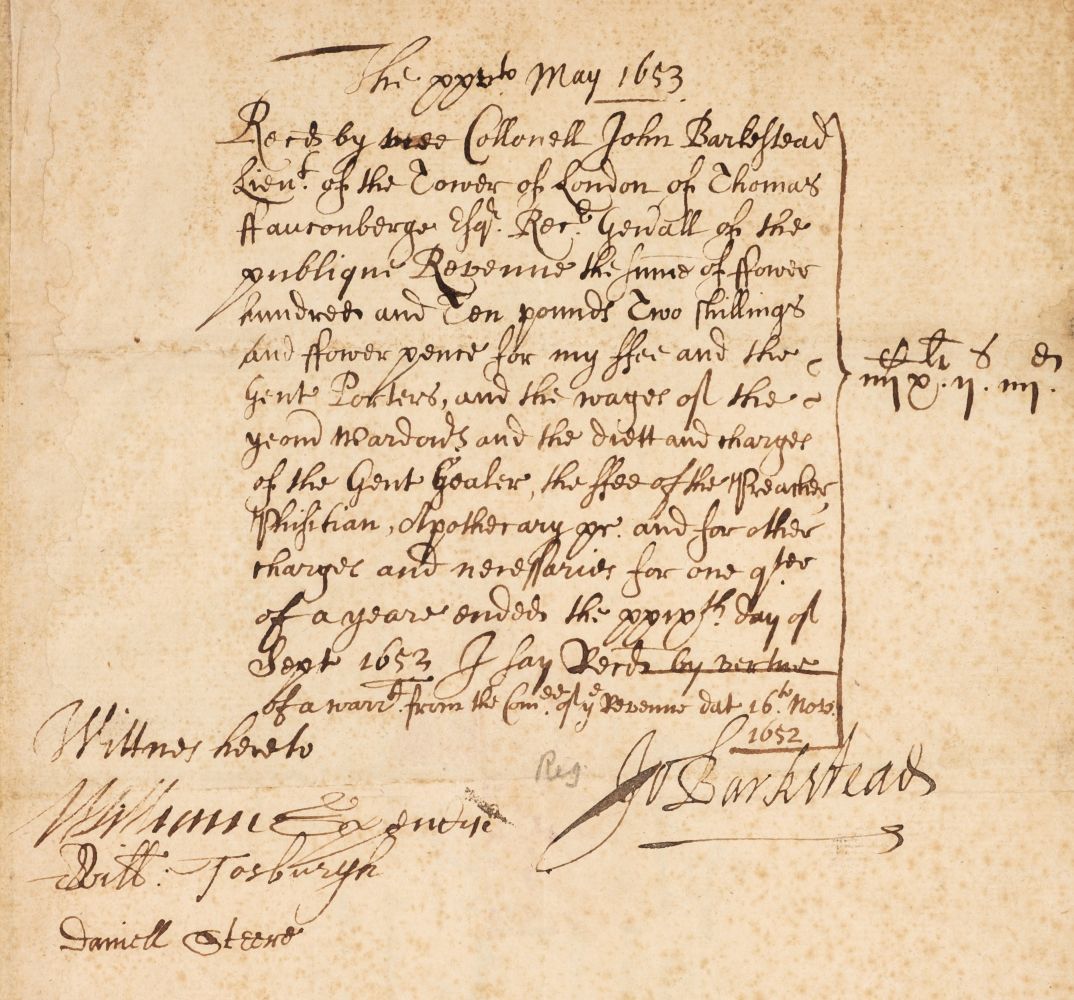 The xxvth May 1653
Recd by mee Collonell John Barkestead
Lieut. of the Tower of London of Thomas
ffauconberge Esqr. Recr. Genall of the
publique Revenue the summe of ffower
hundred and Ten pounds Two shillings
and ffower pence for my ffee and the
Gent Porters, and the wages of the
yeom Wardors and the diett and charges
of the Gent Goaler, the ffee of the Preacher
Phisitian, Apothecary &c. and for other
charges and necessaries for one qter
of a yeare ended the xxixth. day of
Sept 1652 I say Recd by vertue
of a warrt. from the Comee. of ye Revenue dat 16th. Nov.
1652
iiijc xli. ijs. iiijd.
Wittnes hereto
William
Will: Tosburgh
Daniell Steere
Reg.
Jo Barkstead